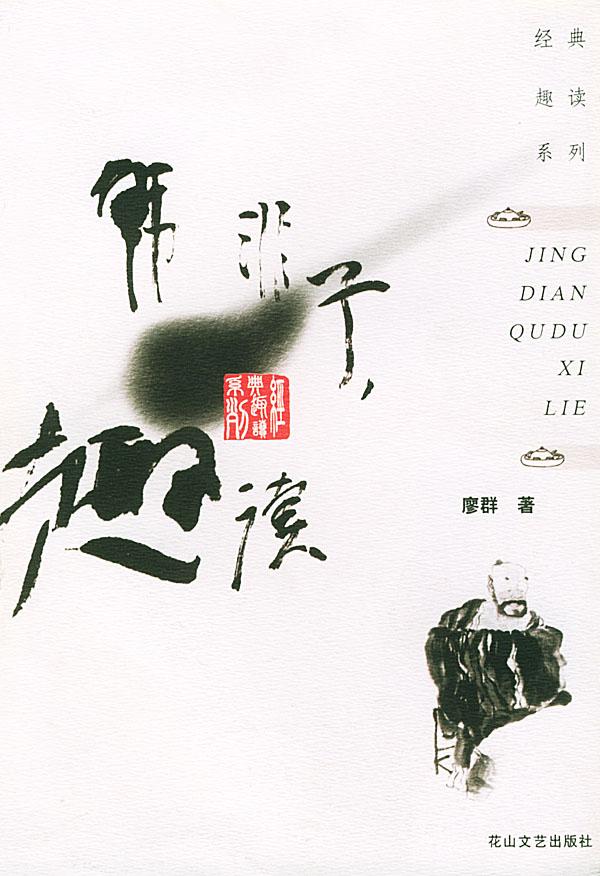 经典
趣读
系列
JING
DIAN
QUDU
XI
LIE
韩非子
趣读
經典趣讀系列
廖群 著
花山文艺出版社